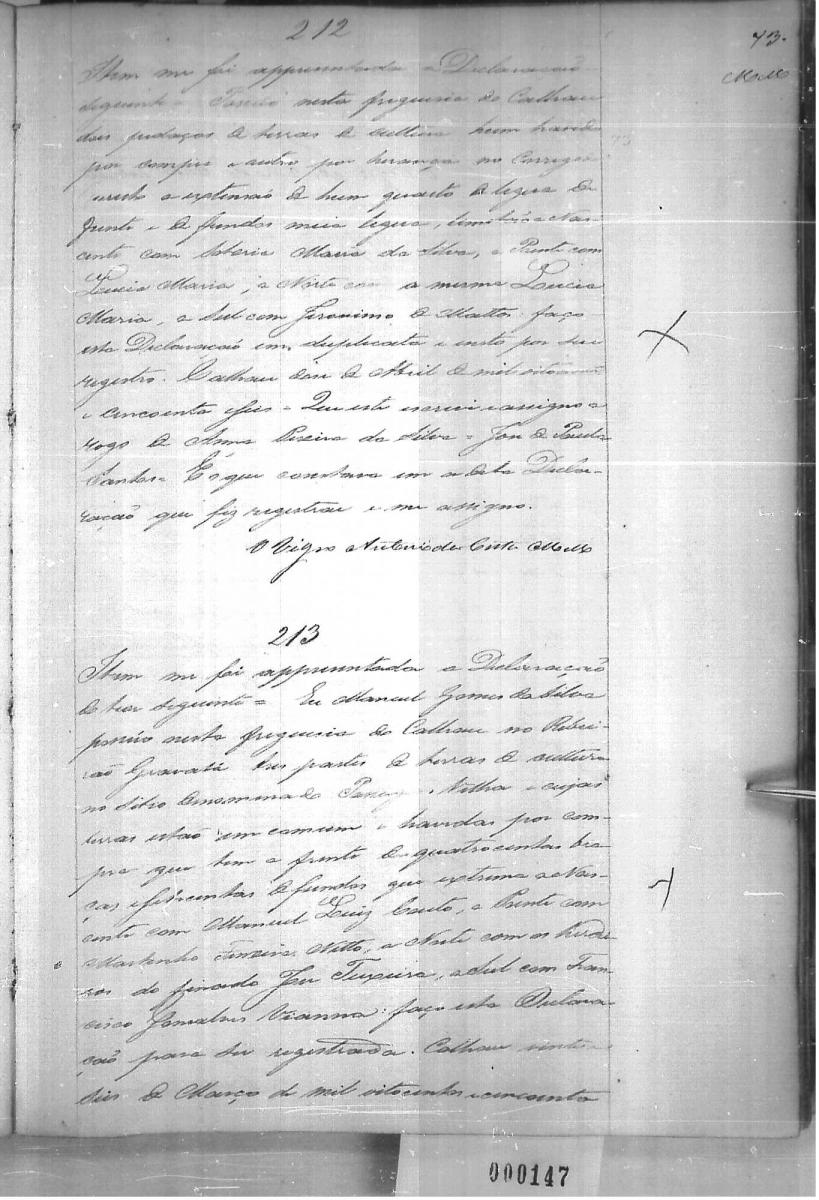 212
73.
Item me foi appresentada a Declaração
seguinte = Possúo nesta freguesia do Calhau
dois pedaços de terras de cultura hum havido
por compra e outro por herança no Corrego
a extensão de hum quarto de legua de
frente e de fundos meia legua, a Nas-
cente com Maria da Silva, a Poente com
Lucia Maria, a Norte com a mesma Lucia
Maria, a Sul com Jeronimo de Mattos: faço
esta Declaração em duplicata e por seu
registro. Calhau de Abril de mil oitocentos
e cincoenta e seis = Que este escrevi e assigno a
rogo de Anna Pereira da Silva = José de Paula
Santos = É o que constava em a dita Decla-
ração que fiz registrar e me assigno.
O Vigro Antonio da Costa
213
Item me foi appresentada a Declaração
do teor seguinte = Eu Manuel Gomes da Silva
possúo nesta freguesia do Calhau no Ribei-
rão Gravatá tres partes de terras de cultura
no sitio denominado Velha e cujas
terras estão em comum e havidas por com-
pra que tem a frente de quatrocentas bra-
ças e seiscentas de fundos que extrema a Nas-
cente com Manuel Luiz Couto, a Poente com
Martinho Ferreira Netto, a Norte com os herdei-
ros do finado José Teixeira, a Sul com Fran-
cisco Gonsalves Vianna: faço esta Declara-
ção para ser registrada. Calhau vinte e
seis de Março de mil oitocentos e cincoenta
000147